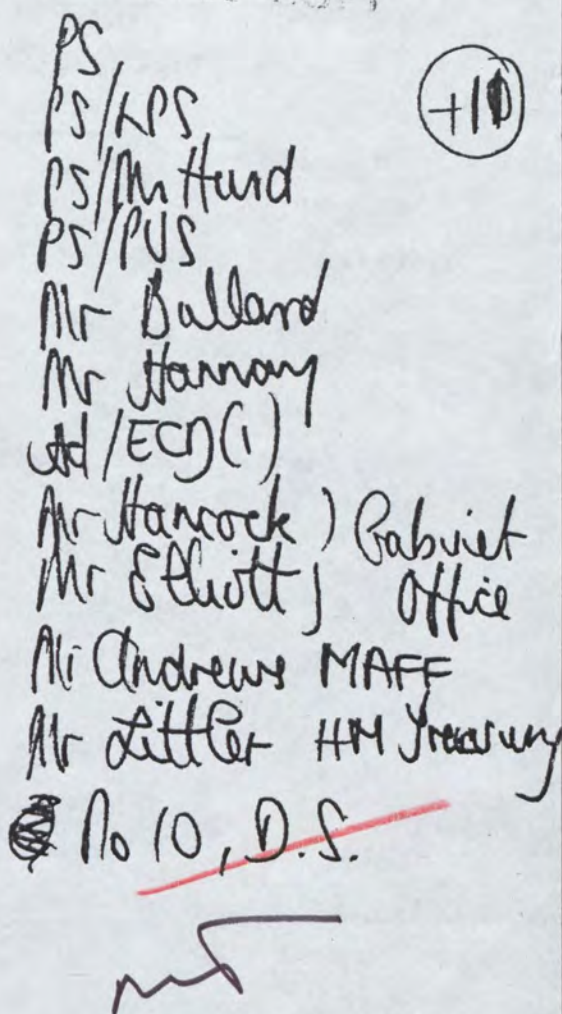 PS
+10
PS/LPS
PS/Mr Hurd
PS/PUS
Mr Bullard
Mr Hannay
Hd/ECD(1)
Mr Hancock ) Cabinet
Mr Elliott ) Office
Mr Andrews MAFF
Mr Littler HM Treasury
No 10, D.S.